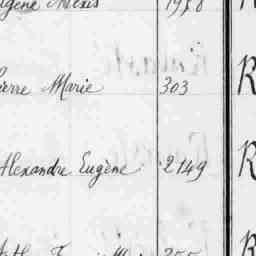 Eugène Alexis 1938
Pierre Marie 303 R
Alexandre Eugène 2149 R